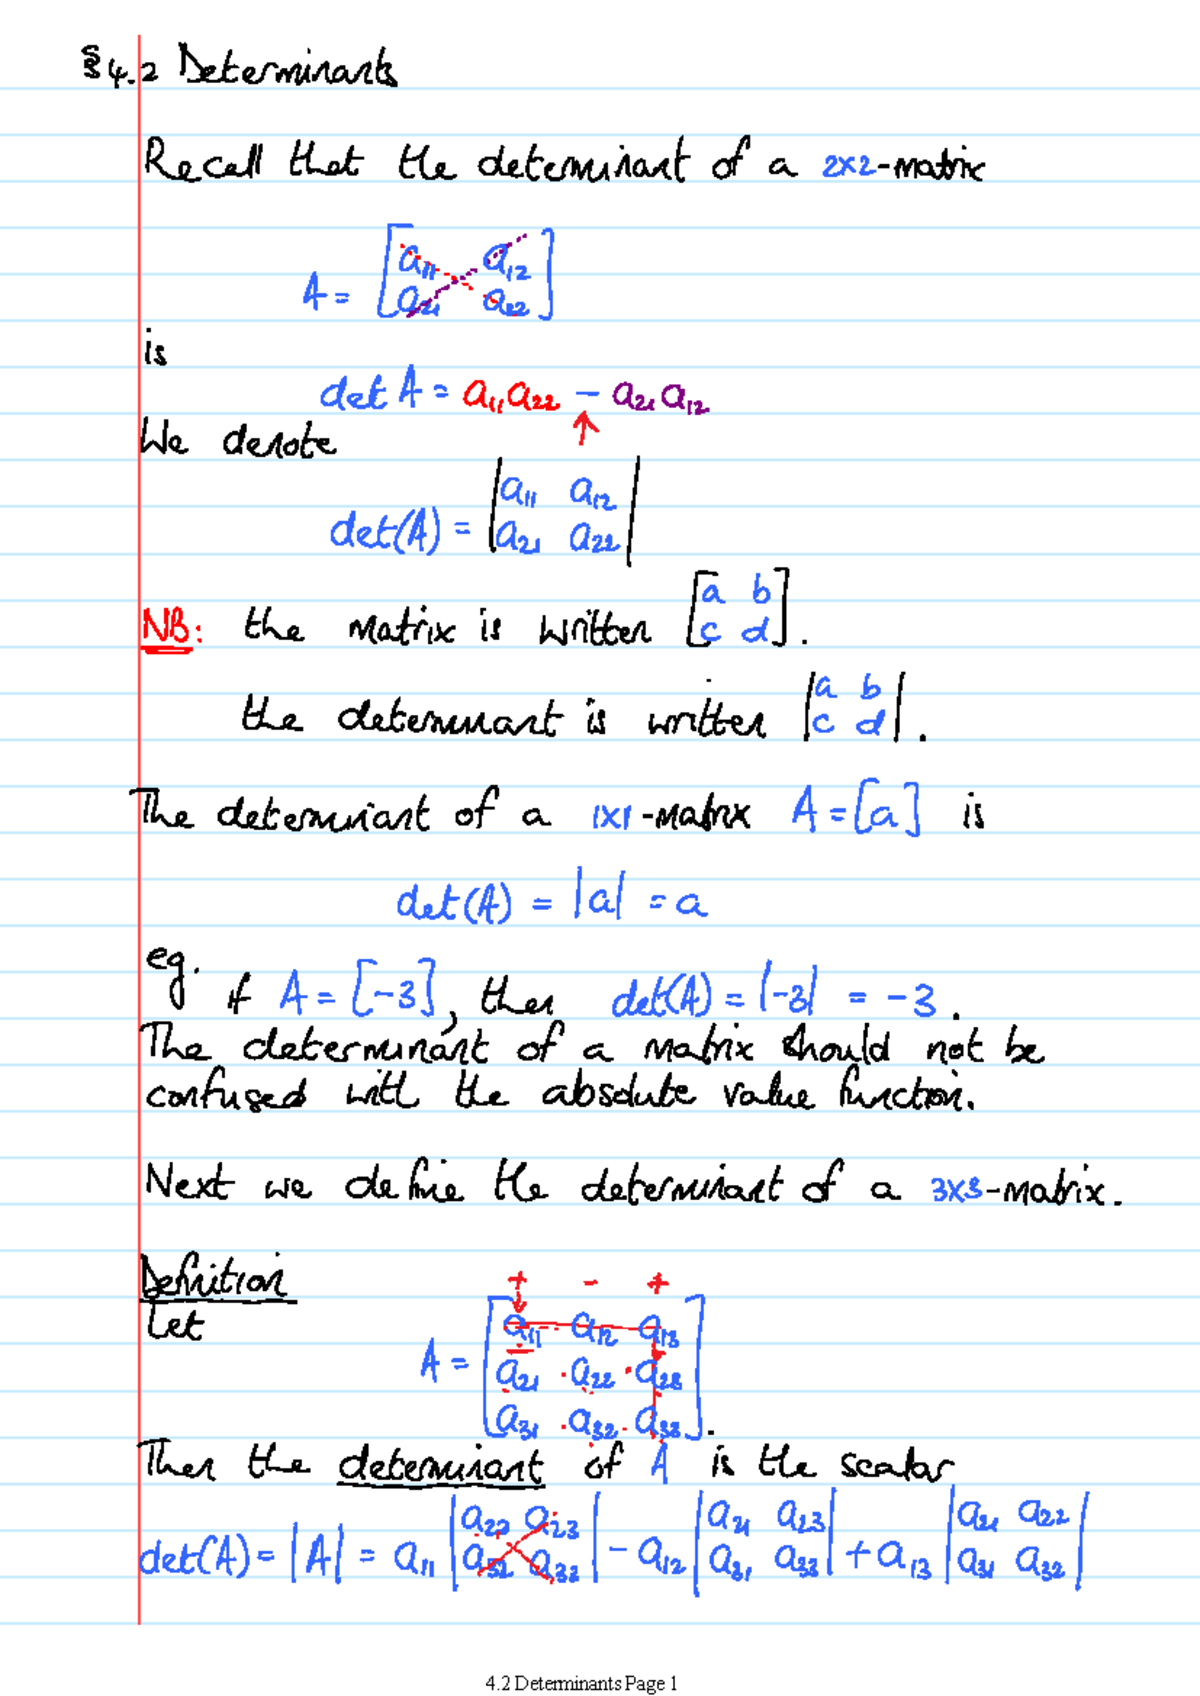 §4.2 Determinants
Recall that the determinant of a 2x2-matrix
A = [a₁₁ a₁₂
a₂₁ a₂₂]
is
det A = a₁₁a₂₂ − a₂₁a₁₂
We denote
det(A) = |a₁₁ a₁₂
a₂₁ a₂₂|
NB: the matrix is written [a b
c d].
the determinant is written |a b
c d|.
The determinant of a 1x1-matrix A = [a] is
det(A) = |a| = a
eg. if A = [-3], then det(A) = |-3| = -3.
The determinant of a matrix should not be
confused with the absolute value function.
Next we define the determinant of a 3x3-matrix.
Definition
+ - +
Let
A = [a₁₁ a₁₂ a₁₃
a₂₁ a₂₂ a₂₃
a₃₁ a₃₂ a₃₃].
Then the determinant of A is the scalar
det(A) = |A| = a₁₁ |a₂₂ a₂₃| − a₁₂ |a₂₁ a₂₃| + a₁₃ |a₂₁ a₂₂|
|a₃₂ a₃₃| |a₃₁ a₃₃| |a₃₁ a₃₂|
4.2 Determinants Page 1